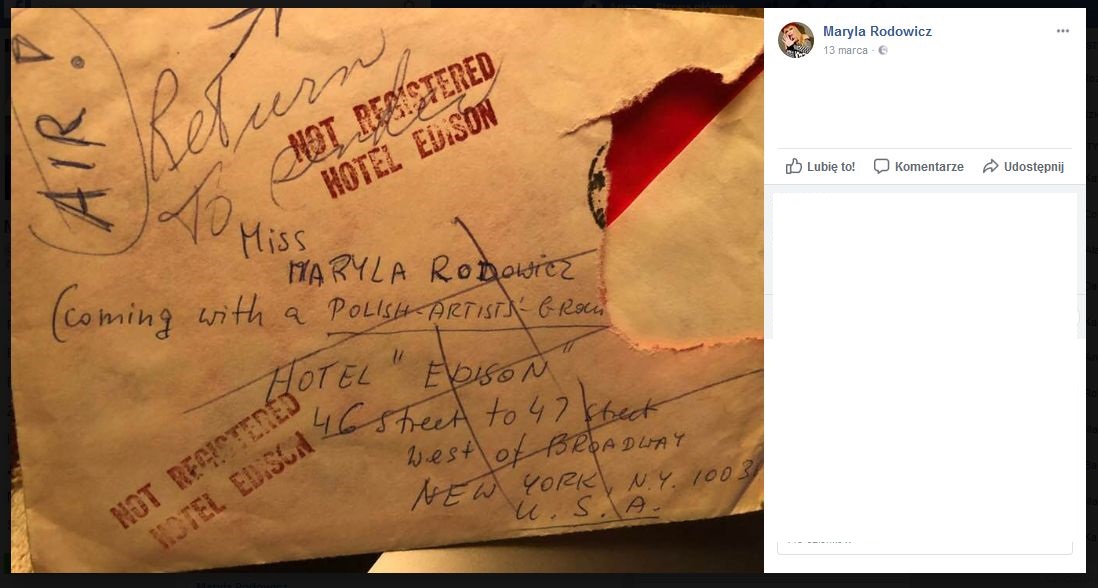 AIR.
Return
To Sender
NOT REGISTERED
HOTEL EDISON
Miss
MARYLA RODOWICZ
(Coming with a POLISH-ARTISTS'-GROU
HOTEL " EDISON "
46 Street to 47 Street
West of BROADWAY
NEW YORK, N.Y. 1003
U. S. A.
NOT REGISTERED
HOTEL EDISON
Maryla Rodowicz
13 marca
Lubię to!
Komentarze
Udostępnij